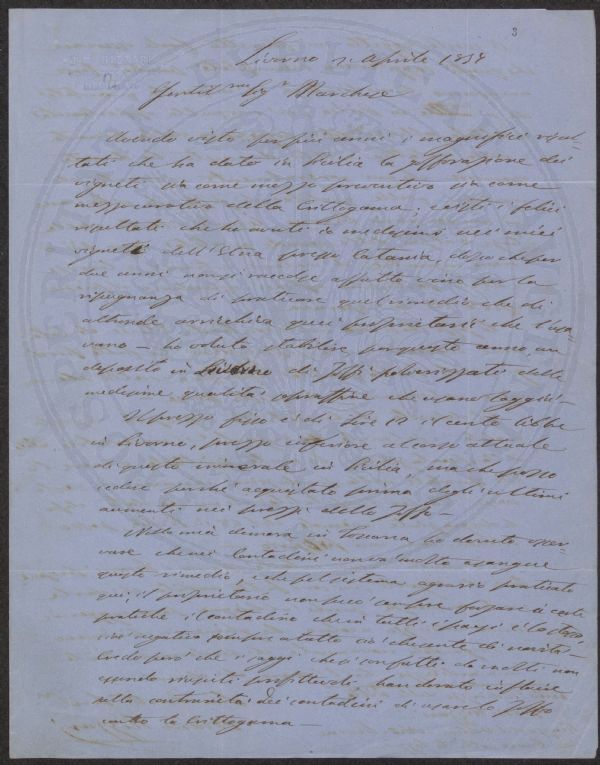 3
Livorno 2 Aprile 1858
Gentil.mo Sig.r Marchese
Avendo visto per più anni i magnifici risul-
tati che ha dato in Sicilia la zolforazione dei
vigneti sia come mezzo preventivo sia come
mezzo curativo della Crittogama; e visti i felici
risultati che ho avuti io medesimo nei miei
vigneti dell'Etna presso Catania, dopo che per
due anni non si raccolse affatto vino per la
ripugnanza di praticare quel rimedio che di
altronde arricchiva quei proprietarii che l'usa-
vano – ho voluto stabilire per questo anno, un
deposito in Livorno di Zolfi polverizzati delle
medesime qualità sopraffine che usano laggiù –
Il prezzo fisso è di Lire 12 il cento libbre
in Livorno, prezzo inferiore al corso attuale
di questo minerale in Sicilia, ma che posso
cedere perchè acquistato prima degli ultimi
aumenti nei prezzi dello Zolfo –
Nella mia dimora in Toscana ho dovuto osser-
vare che nei Contadini non v'è molta
questo rimedio, e che pel sistema agrario praticato
qui, il proprietario non può sempre forzare a certe
pratiche il contadino che in tutti i paesi è lo stesso,
cioè negativo sempre a tutto ciò che sente di novità.
Credo però che i saggi che si son fatti da molti non
quando riusciti profittevoli, han dovuto influire
nella contrarietà dei contadini di usare lo Zolfo
contro la Crittogama –